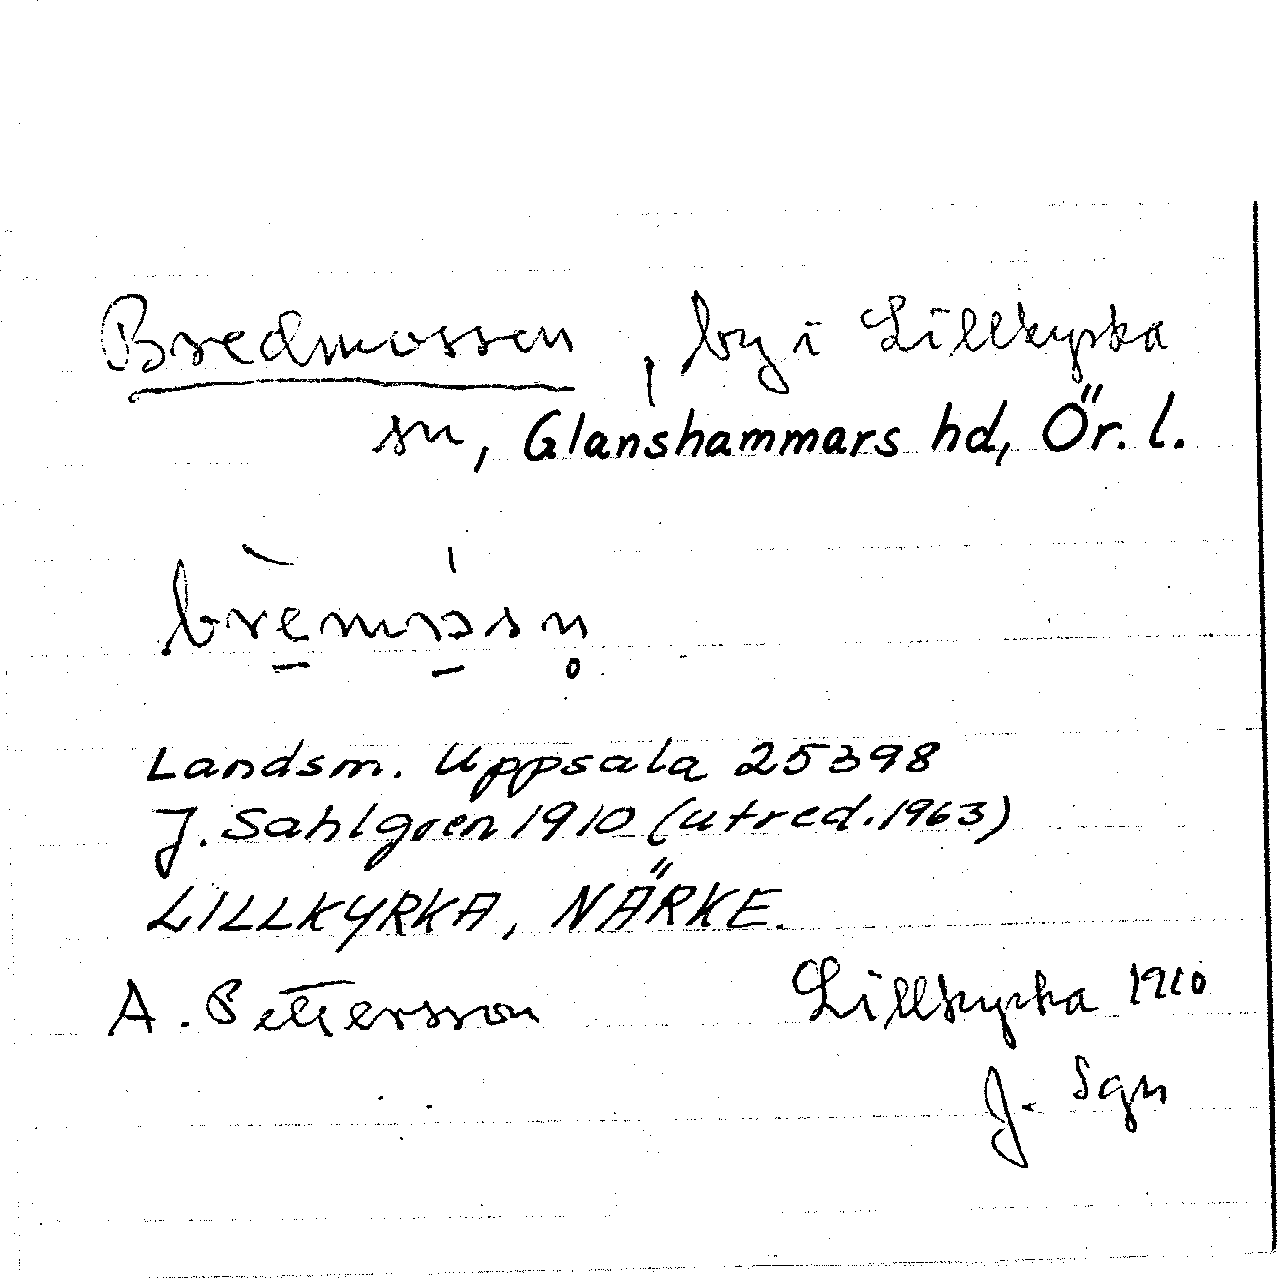 Bredmossen, by i Lillkyrka
sn, Glanshammars hd, Ör. l.
brèmɔ́sn̥
Landsm. Uppsala 25398
J. Sahlgren 1910 (utred. 1963)
LILLKYRKA, NÄRKE.
A. Pettersson Lillkyrka 1910
J. Sgn